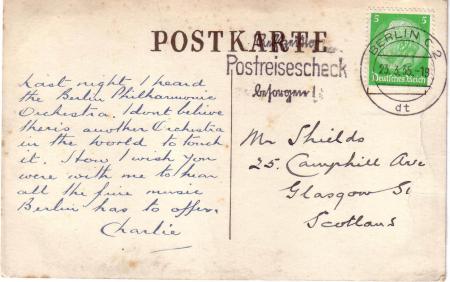 POSTKARTE
Postreisescheck
besorgen!
BERLIN C 2
dt
5 5
Deutsches Reich
Last night I heard
the Berlin Philharmonic
Orchestra. I dont believe
theres another Orchestra
in the world to touch
it. How I wish you
were with me to hear
all the fine music
Berlin has to offer.
Charlie
Mr Shields
25. Camphill Ave
Glasgow S1
Scotland